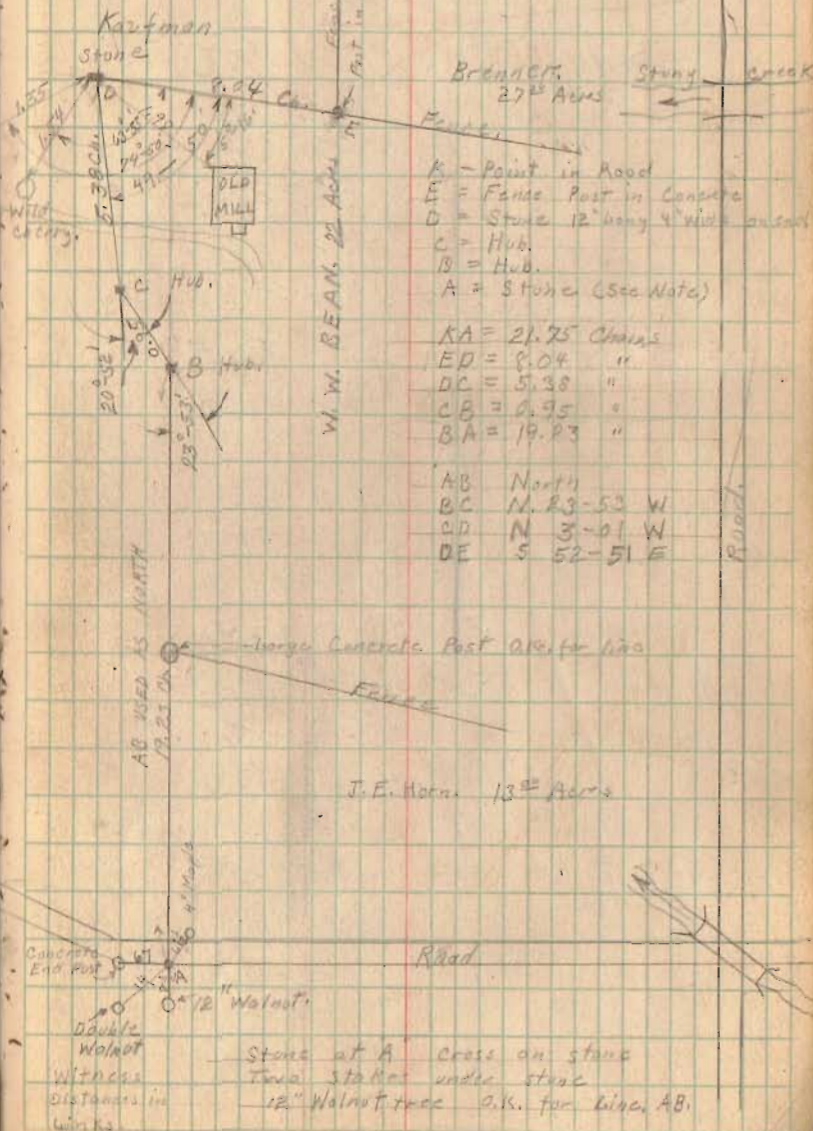 Kaufman
Stone
D
8.04 Ch.
Fence
Post in
E
Brenner.
27 Acres
Stony Creek
Fence.
5.38 Ch.
OLD
MILL
Wild
Cherry.
K = Point in Road
E = Fence Post in Concrete
D = Stone 12" Long 4" wide on end
C = Hub.
B = Hub.
A = Stone (See Note)
C
Hub.
B Hub.
20°-52'
23°-53'
W. W. BEAN. 22 Acres
KA = 21.75 Chains
ED = 8.04 "
DC = 5.38 "
CB = 0.95 "
BA = 19.23 "
AB North
BC N. 23-53 W
CD N 3-01 W
DE S 52-51 E
Road.
AB USED AS NORTH
19.23 Ch.
Large Concrete Post O.K. for line
Fence
J. E. Horn. 13 Acres
4" Maple
Concrete
End Post
A
Road
12" Walnut.
Double
Walnut
Witness
Distances in
Links
Stone at A Cross on stone
Two stakes under stone
12" Walnut tree O.K. for Line AB.